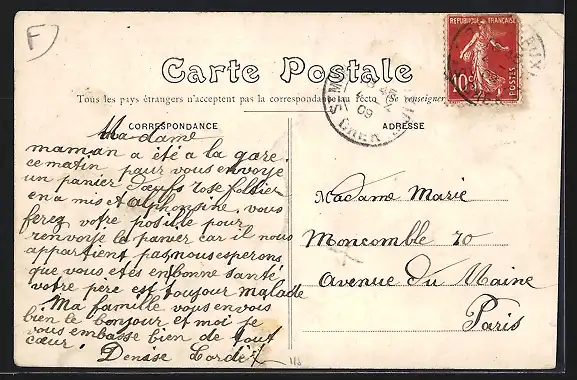 F
Carte Postale
Tous les pays étrangers n'acceptent pas la correspondance au recto (Se renseigner
CORRESPONDANCE
Madame
maman a été a la gare
ce matin pour vous envoye
un panier d'œufs rose follier
en a mis et alphonsine, vous
ferez votre posible pour
renvoye le panier car il nous
appartient pas nous esperons
que vous etes en bonne santé
votre pere est toujour malade
Ma famille vous envois
bien le bonjour et moi je
vous embasse bien de tout
cœur. Denise
ADRESSE
Madame Marie
Moncomble 70
Avenue du Maine
Paris
REPUBLIQUE FRANÇAISE
10c
POSTES
09